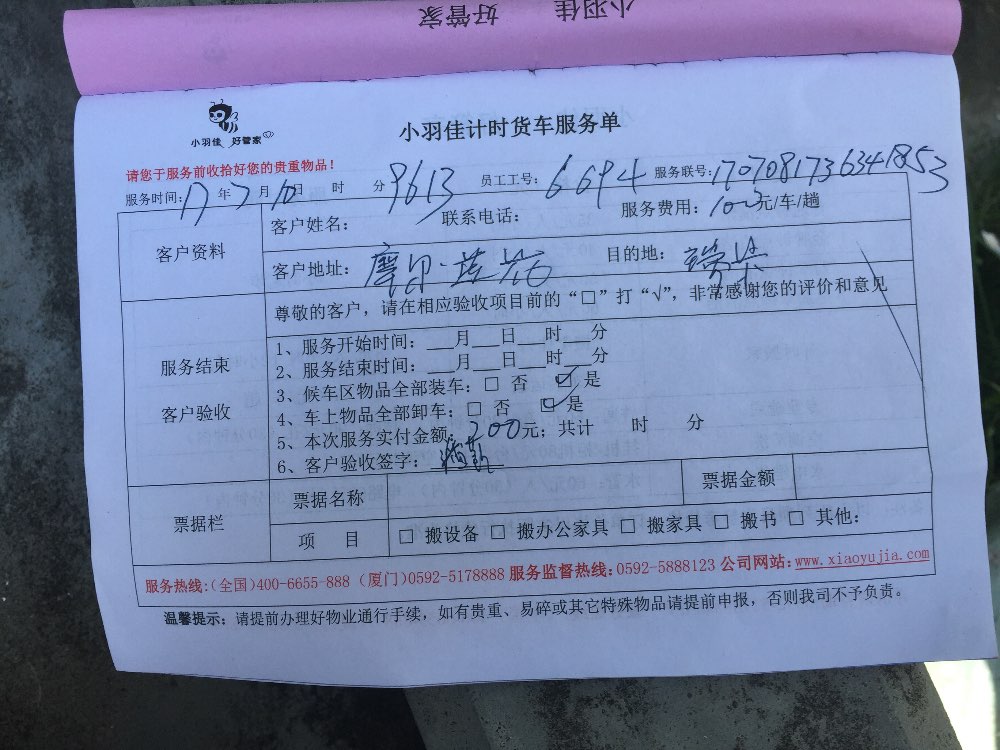 小羽佳 好管家
小羽佳 好管家
小羽佳计时货车服务单
请您于服务前收拾好您的贵重物品！
服务时间：17年7月10日 时 分 9613 员工工号：6694 服务联号：1707081736341853
客户资料
客户姓名： 联系电话： 服务费用：100元/车/趟
客户地址：摩尔·莲花 目的地：瑞景
服务结束
客户验收
尊敬的客户，请在相应验收项目前的“□”打“√”，非常感谢您的评价和意见
1、服务开始时间：___月___日___时___分
2、服务结束时间：___月___日___时___分
3、候车区物品全部装车：□ 否 ☑ 是
4、车上物品全部卸车：□ 否 ☑ 是
5、本次服务实付金额：200元；共计 时 分
6、客户验收签字：
票据栏
票据名称 票据金额
项 目 □ 搬设备 □ 搬办公家具 □ 搬家具 □ 搬书 □ 其他：
服务热线：(全国)400-6655-888 (厦门)0592-5178888 服务监督热线：0592-5888123 公司网站：www.xiaoyujia.com
温馨提示：请提前办理好物业通行手续，如有贵重、易碎或其它特殊物品请提前申报，否则我司不予负责。